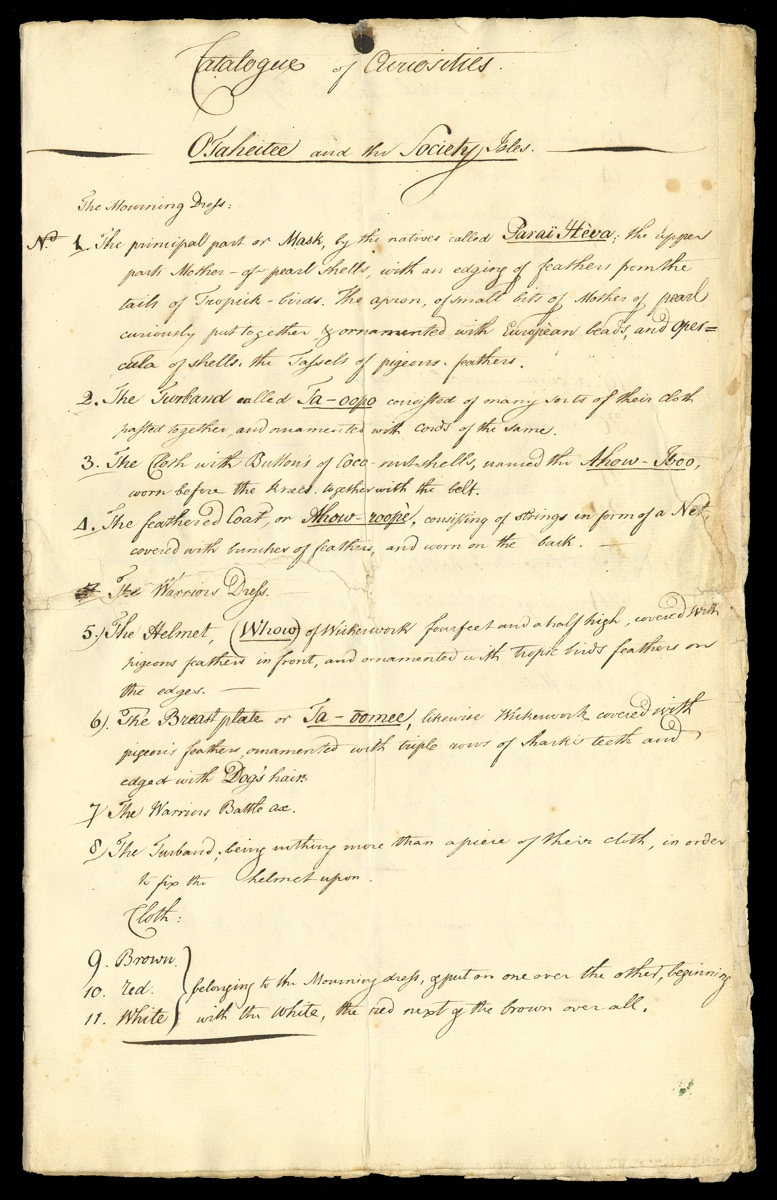 Catalogue of Curiosities.
O'Taheitee and the Society Isles.
The Mourning Dress:
No. 1. The principal part or Mask, by the natives called Paraï Hèva; the upper
part Mother-of-pearl shells, with an edging of feathers from the
tails of Tropick-birds. The apron, of small bits of Mother of pearl
curiously put together & ornamented with European beads, and oper=
cula of shells: the Tassels of pigeons feathers.
2. The Turband called Ta-oopo consisted of many sorts of their cloth
pasted together, and ornamented with cords of the same.
3. The Cloth with Buttons of Coco-nutshells, named the Ahow-Iboo,
worn before the knees together with the belt.
4. The feathered Coat, or Ahow-roope, consisting of strings in form of a Net,
covered with bunches of feathers, and worn on the back. —
The Warriors Dress.
5.) The Helmet, (Whow) of Wickerwork four feet and a half high, covered with
pigeons feathers in front, and ornamented with tropic birds feathers on
the edges. —
6). The Breast plate or Ta-oomee, likewise Wickerwork covered with
pigeon's feathers, ornamented with triple rows of shark's teeth and
edged with Dog's hair.
7) The Warriors Battle ax.
8) The Turband, being nothing more than a piece of their cloth, in order
to fix the helmet upon.
Cloth:
9. Brown.
10. red.
11. White
belonging to the Mourning dress, & put on one over the other, beginning
with the white, the red next & the brown over all.